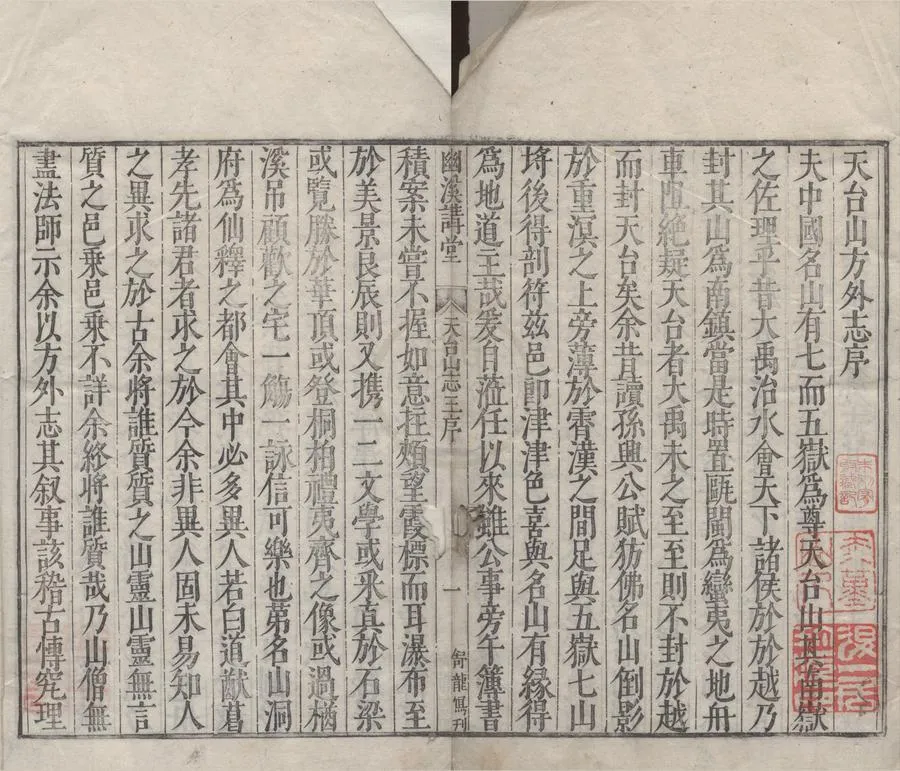 天台山方外志序
夫中國名山有七而五嶽爲尊天台山其南嶽
之佐理乎昔大禹治水會天下諸侯於於越乃
封其山爲南鎮當是時置甌閩爲蠻夷之地舟
車阻絶疑天台者大禹未之至至則不封於越
而封天台矣余昔讀孫興公賦彷佛名山倒影
於重溟之上旁薄於霄漢之間足與五嶽七山
埒後得剖符兹邑卽津津色喜與名山有縁得
爲地道主哉爰自涖任以來雖公事旁午簿書
幽溪講堂
天台山志王序
一
積案未嘗不握如意拄頰望霞標而耳瀑布至
於美景良辰則又携一二文學或釆真於石梁
或覽勝於華頂或登桐柏禮夷齊之像或過楢
溪吊顧歡之宅一觴一詠信可樂也第名山洞
府爲仙釋之都會其中必多異人若白道猷葛
孝先諸君者求之於今余非異人固未易知人
之異求之於古余將誰質質之山靈山靈無言
質之邑乗邑乗不詳余終將誰質哉乃山僧無
盡法師示余以方外志其叙事該稽古慱究理